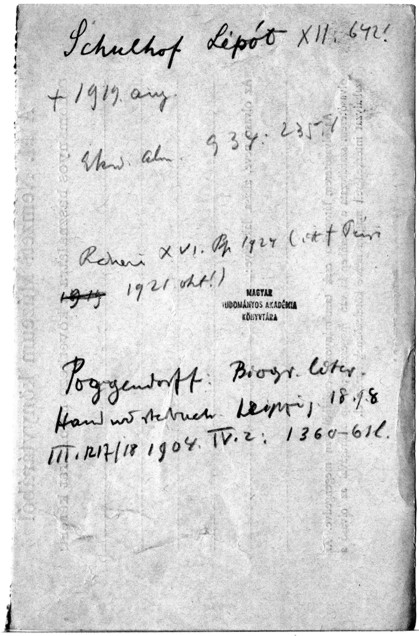 Schulhof Lipót XII. 642!
+ 1919. aug.
alm. 934. 235-
XVI. Bp. 1924 (itt + Páris
1919 1921 okt!)
MAGYAR
TUDOMÁNYOS AKADÉMIA
KÖNYVTÁRA
Poggendorff: Biogr. liter.
Handwörtebuch. Leipzig 1898
III. 1217/18 1904. IV. 2: 1360-61l.